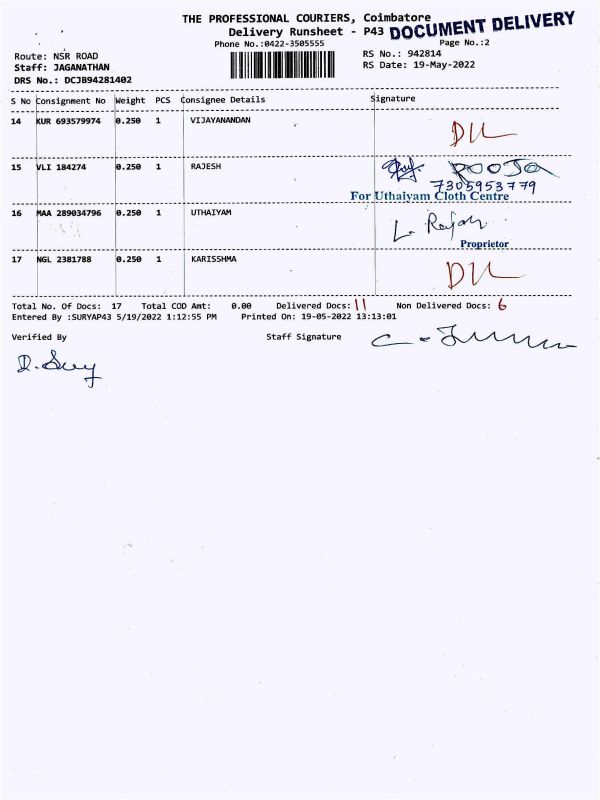 THE PROFESSIONAL COURIERS, Coimbatore
Delivery Runsheet - P43
DOCUMENT DELIVERY
Phone No.:0422-3505555
Page No.:2
Route: NSR ROAD
RS No.: 942814
Staff: JAGANATHAN
RS Date: 19-May-2022
DRS No.: DCJB94281402
S No Consignment No Weight PCS Consignee Details Signature
14 KUR 693579974 0.250 1 VIJAYANANDAN
15 VLI 184274 0.250 1 RAJESH POOJA
7305953779
For Uthaiyam Cloth Centre
16 MAA 289034796 0.250 1 UTHAIYAM L. Rajan
Proprietor
17 NGL 2381788 0.250 1 KARISSHMA
Total No. Of Docs: 17 Total COD Amt: 0.00 Delivered Docs: 11 Non Delivered Docs: 6
Entered By :SURYAP43 5/19/2022 1:12:55 PM Printed On: 19-05-2022 13:13:01
Verified By Staff Signature